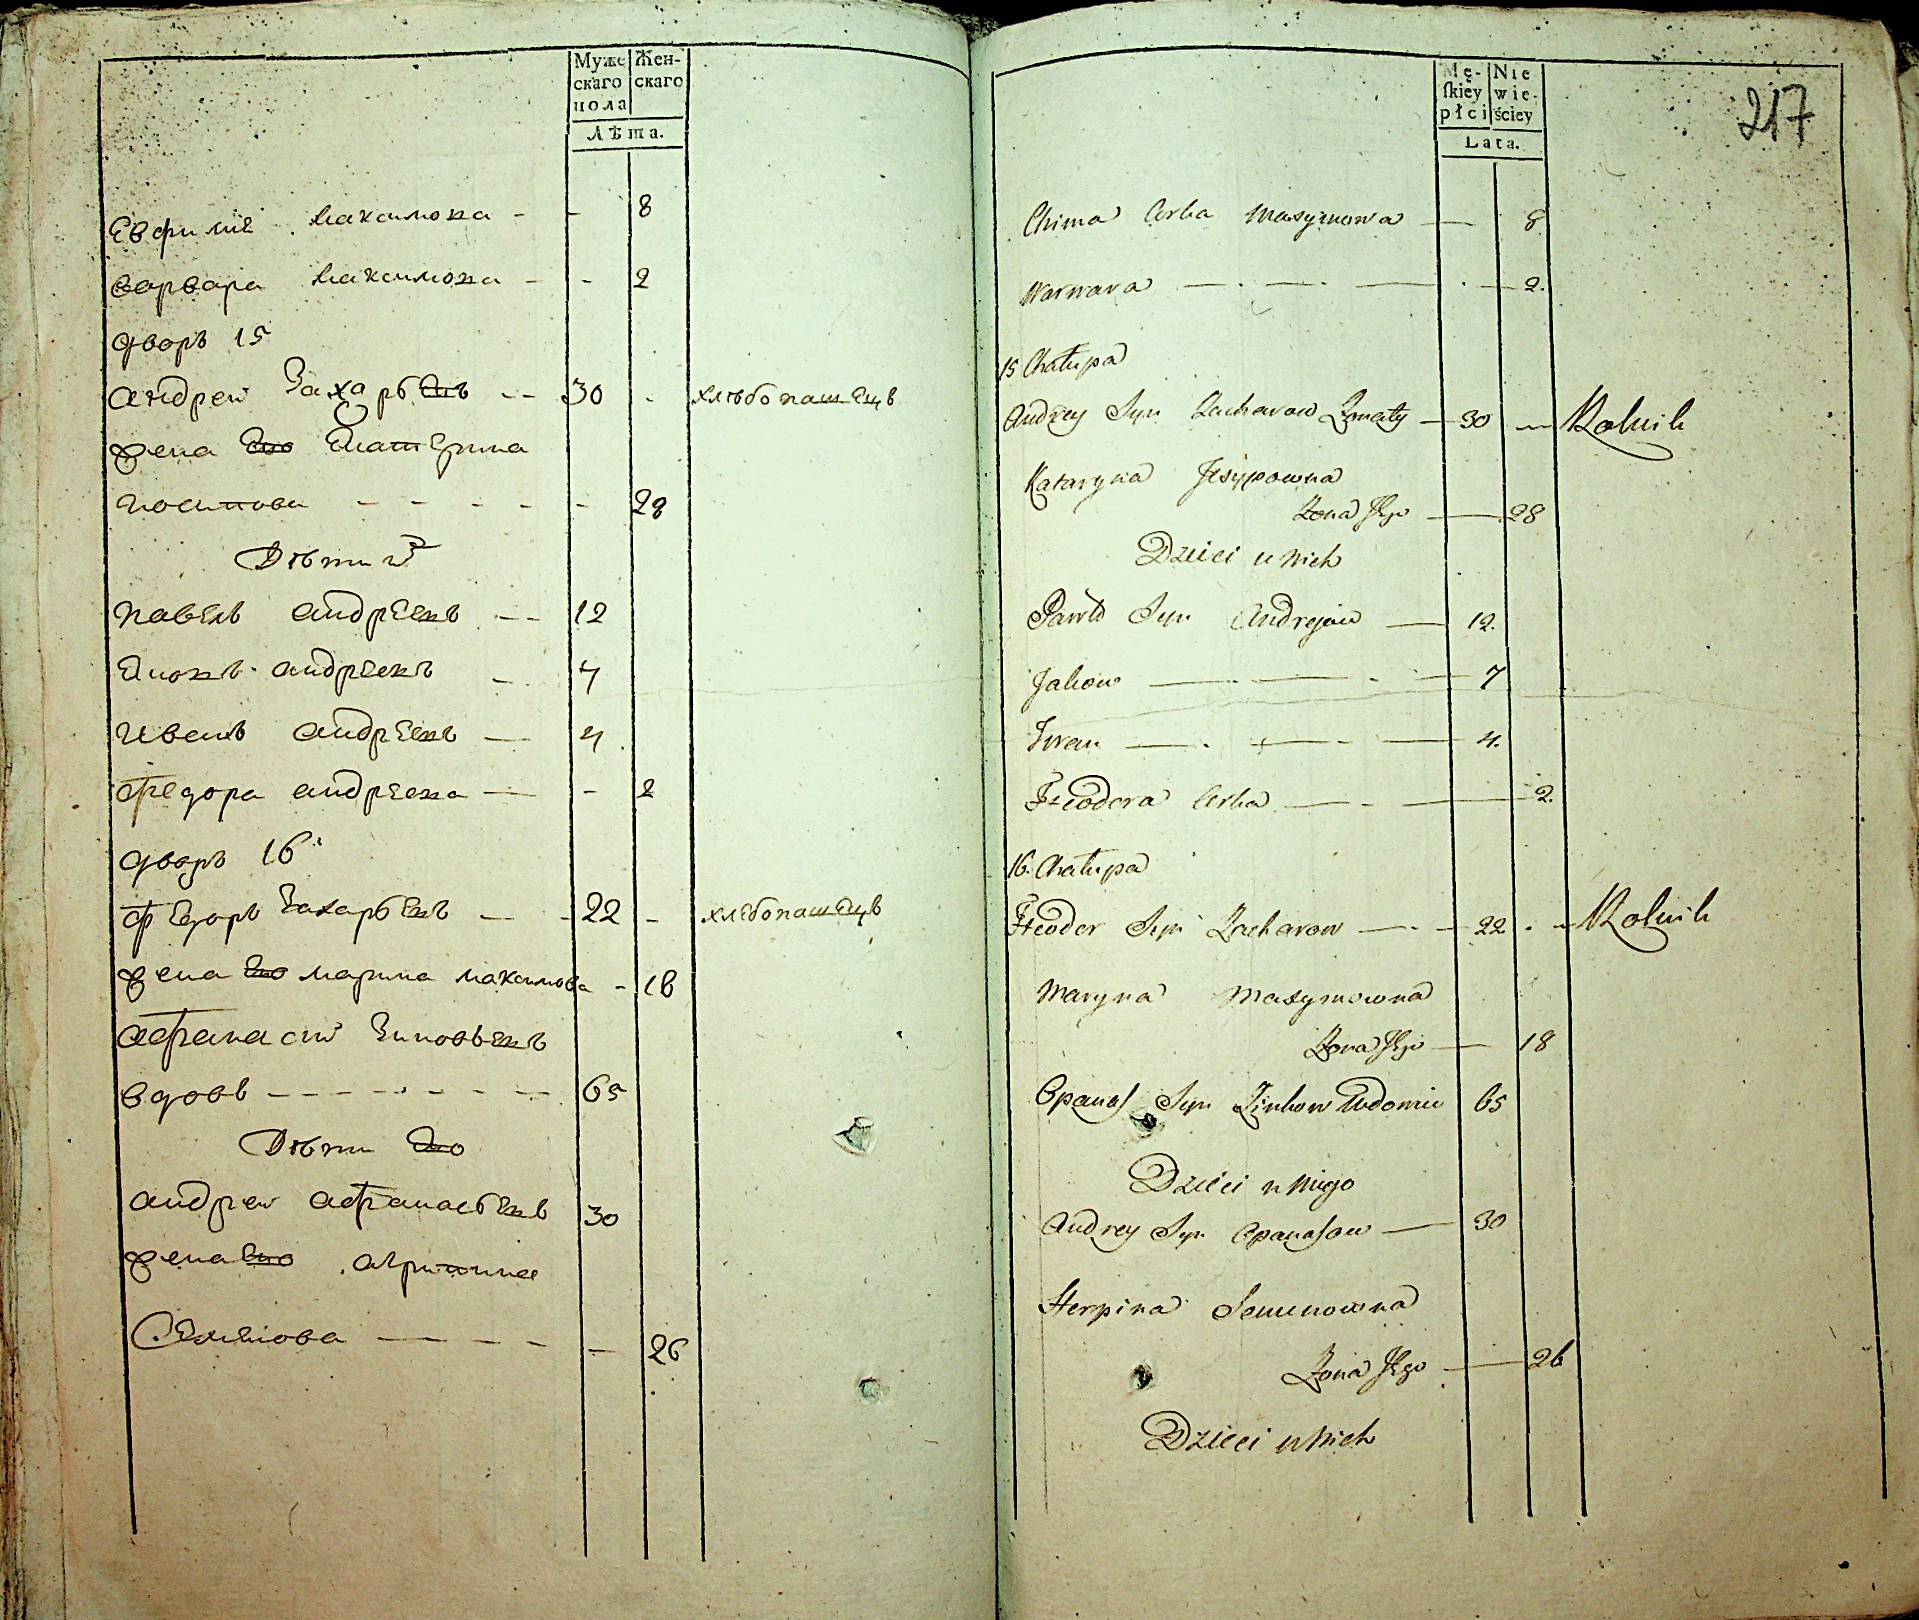 Муже Жен-
скаго скаго
пола
Лѣта.
Евфимiе Максимова - - 8
варвара Максимова - - 2
дворъ 15
андреи Захарьевъ -- 30 - хлѣбопашецъ
жена Его Екатерина
иосипова - - - - - 28
Дѣти ихъ
павелъ андреевъ -- 12
Яковъ андреевъ - 7
иванъ андреевъ — 4
федора андреева — - 2
дворъ 16
федоръ Захарьевъ — - 22 - хлѣбопашецъ
жена Его марина максимова - 18
афанасий Зиновьевъ
вдовъ - - - - - - - 65
Дѣти Его
андреи афанасьевъ 30
жена Его
Семенова — — - - - — 26
217
Mę- Nie
ſkiey wie-
płci ściey
Lata.
Chima Corka Maxymowa — 8
Warwara — . — . — 2.
15 Chałupa
Andrey Syn Zacharow Żonaty — 30 — Rolnik
Kataryna Jesypowna
Żona Jego — 28
Dzieci u Nich
Paweł Syn Andrejow — 12.
Jakow — - — . - — 7
Iwan — . — - — 4.
Fteodora Corka — - — 2.
16. Chałupa
Fteodor Syn Zacharow — . — 22 . — Rolnik
Maryna Maxymowna
Żona Jego — 18
Opanas Syn Zinkow Wdowiec 65
Dzieci u Niego
Andrey Syn Opanasow — 30
Herpina Semenowna
Żona Jego — 26
Dzieci u Nich